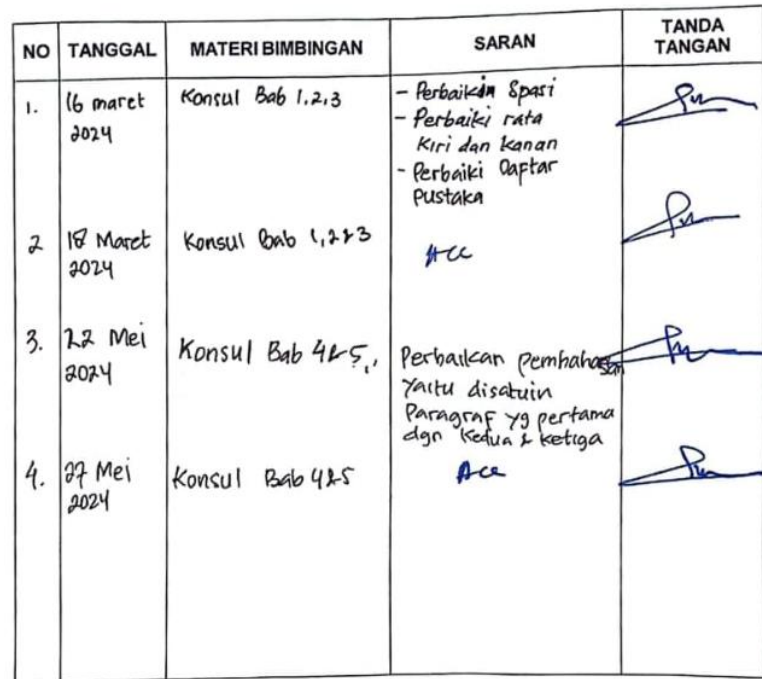 NO TANGGAL MATERI BIMBINGAN SARAN TANDA TANGAN
1. 16 maret 2024 Konsul Bab 1,2,3
- Perbaikan Spasi
- Perbaiki rata
Kiri dan kanan
- Perbaiki Daftar
Pustaka
2 18 Maret 2024 Konsul Bab 1,2&3 Acc
3. 22 Mei 2024 Konsul Bab 4&5,,
Perbaikan pembahasan
Yaitu disatuin
Paragraf yg pertama
dgn kedua & ketiga
4. 27 Mei 2024 Konsul Bab 4&5 Acc